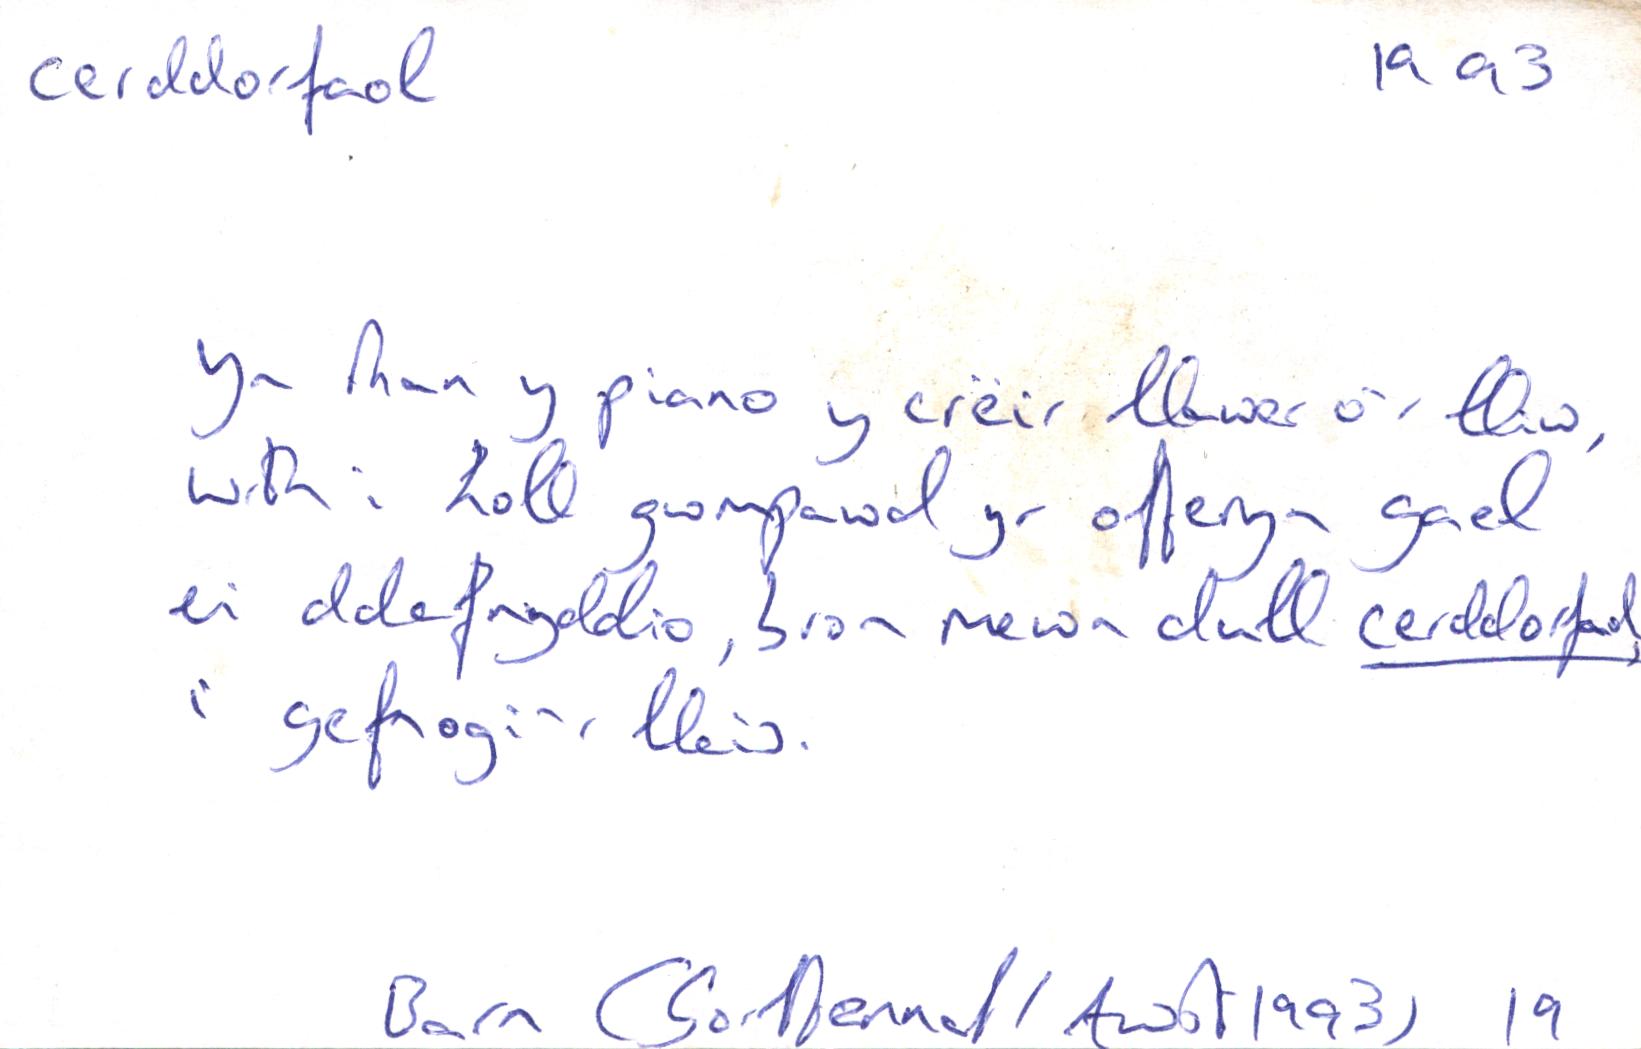 cerddorfaol 1993
Yn rhan y piano y crëir llawer o'r lliw,
wrth i holl gwmpawd yr offeryn gael
ei ddefnyddio, bron mewn dull cerddorfaol,
i gefnogi'r llais.
Barn (Gorffennaf / Awst 1993) 19